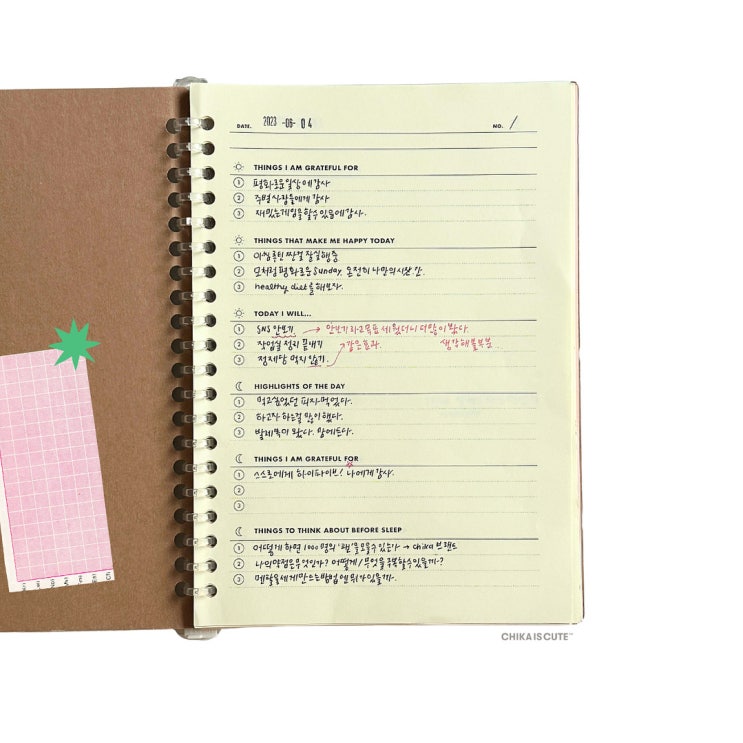 DATE. 2023 -06- 04 NO. 1
THINGS I AM GRATEFUL FOR
1 평화로운 일상에 감사
2 주변 사람들에게 감사
3 재밌는 게임을 할 수 있음에 감사.
THINGS THAT MAKE ME HAPPY TODAY
1 아침 루틴 짠걸 잘 실행중
2 모처럼 평화로운 Sunday. 온전히 나만의 시간인.
3 healthy diet를 해보자.
TODAY I WILL...
1 SNS 안보기. → 안보기라고 목표 세웠더니 더 많이 봤다.
2 작업실 정리 끝내기 → 같은 효과. 생각해볼 부분.
3 정제당 먹지 않기.
HIGHLIGHTS OF THE DAY
1 먹고싶었던 피자 먹었다.
2 하고자 하는걸 많이 했다.
3 발제북이 왔다. 맘에든다.
THINGS I AM GRATEFUL FOR
1 스스로에게 하이파이브! 나에게 감사.
2
3
THINGS TO THINK ABOUT BEFORE SLEEP
1 어떻게 하면 1000명의 '팬'을 모을 수 있는가 → chika 브랜드
2 나의 약점은 무엇인가? 어떻게 / 무엇을 극복할 수 있을까?
3 메탈을 세게 만드는 방법엔 뭐가 있을까.
CHIKA IS CUTE™